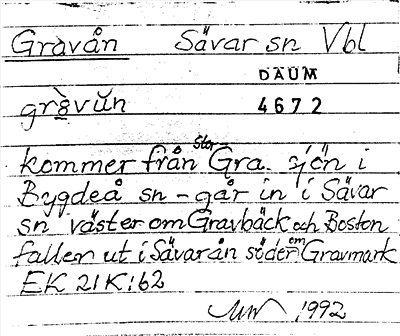 Gravån Sävar sn Vbl
DAUM
grɑ̀vu̇n 4672
stor
kommer från Gra. sjön i
Bygdeå sn - går in i Sävar
sn väster om Gravbäck och Boston
faller ut i Sävarån söder om Gravmark
EK 21 K:62
1992